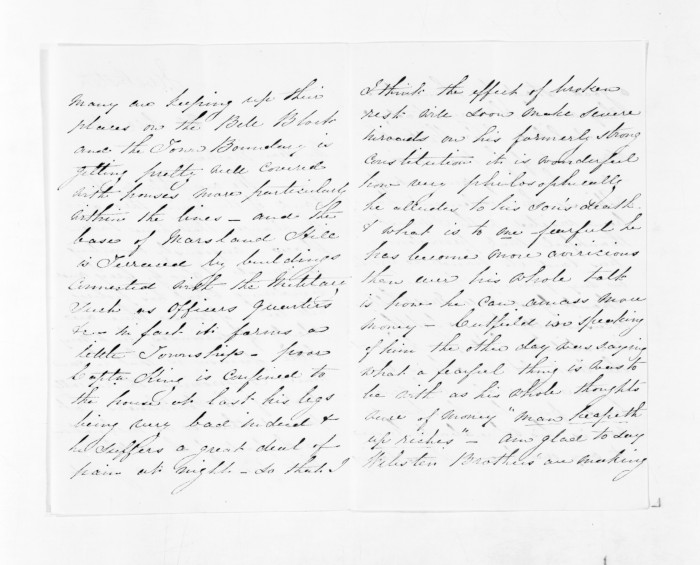 many are keeping up their
places on the Bell Block
and the Town Boundary is
getting pretty well covered
with houses more particularly
within the lines – and the
base of Marsland Hill
is Terraced by buildings
connected with the Military
such as Officers Quarters
&c – in fact it forms a
little Township – poor
Captn King is confined to
the house at last his legs
being very bad indeed &
he suffers a great deal of
pain at night – so that I
I think the effect of broken
rest will soon make severe
inroads on his formerly strong
constitution it is wonderful
how very philosophically
he alludes to his son's death.
& what is to me fearful he
has become more avaricious
than ever his whole talk
is how he can amass more
money – Cutfield in speaking
of him the other day was saying
what a fearful thing is was to
be with as his whole thoughts
were of money "man heapeth
up riches" – am glad to say
Webster Brothers are making